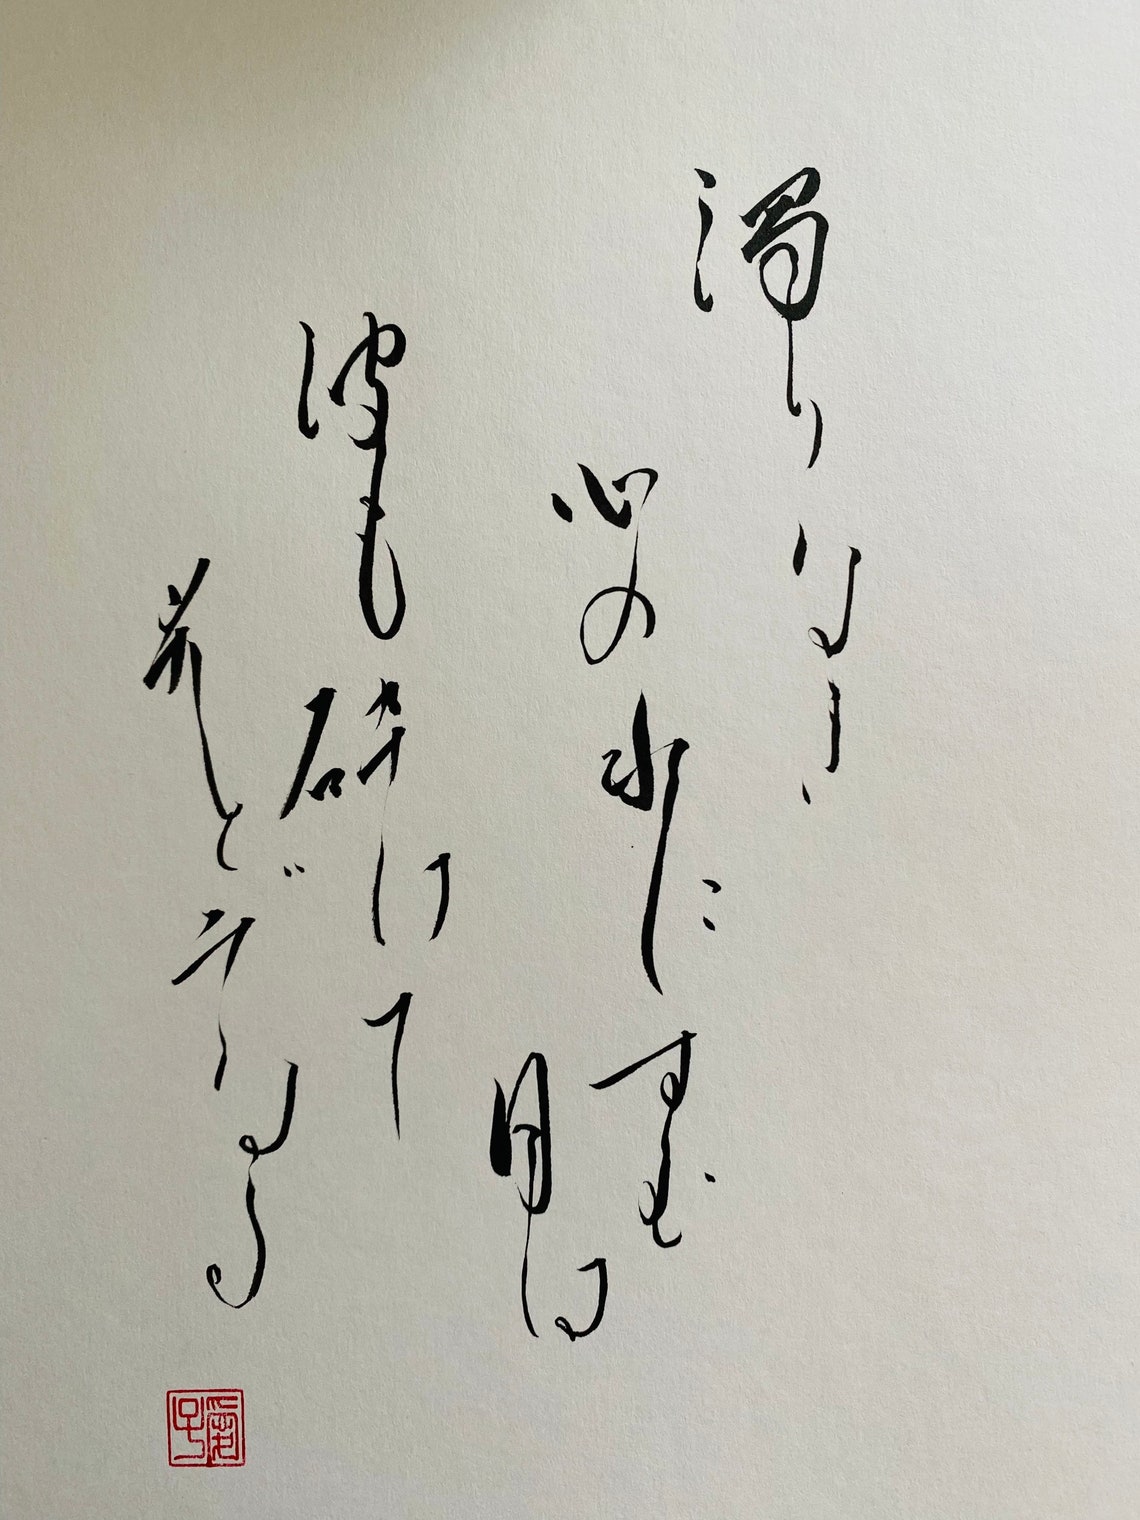 濁りなき
心の水にすむ
月は
波も砕けて
光とぞなる